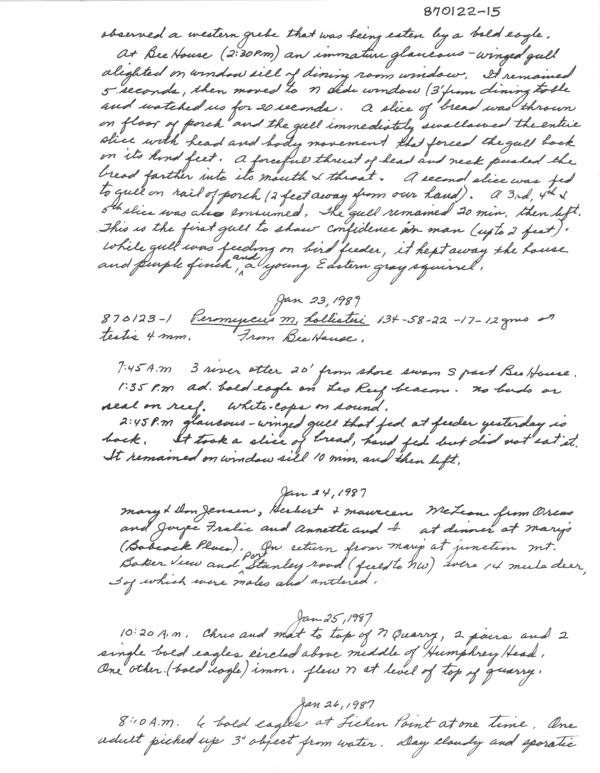 870122-15
observed a western grebe that was being eaten by a bald eagle.
At Bee House (2:30 P.M) an immature glaucous-winged gull
alighted on window sill of dining room window. It remained
5 seconds, then moved to N side window (3' from dining table
and watched us for 20 seconds. A slice of bread was thrown
on floor of porch and the gull immediately swallowed the entire
slice with head and body movement that forced the gull back
on its hind feet. A forceful thrust of head and neck pushed the
bread farther into its mouth & throat. A second slice was fed
to gull on rail of porch (2 feet away from our hand). A 3rd, 4th &
5th slice was also consumed. The gull remained 20 min. then left.
This is the first gull to show confidence in man (up to 2 feet).
While gull was feeding on bird feeder, it kept away the house
and purple finch, and a young Eastern gray squirrel.
Jan 23, 1989
870123-1 Peromyscus m. hollisteri 134-58-22-17-12 gms ♂
testis 4 mm. From Bee House.
7:45 A.M 3 river otter 20' from shore swam S past Bee House.
1:35 P.M ad. bald eagle on Leo Reef beacon. No birds or
seal on reef. White-caps on sound.
2:45 P.M glaucous-winged gull that fed at feeder yesterday is
back. It took a slice of bread, hand fed but did not eat it.
It remained on window sill 10 min, and then left.
Jan 24, 1987
Mary & Don Jensen, Herbert & Maureen McLean from Orcas
and Joyce Fralic and Annette and I at dinner at Mary's
(Babcock Place). On return from Mary's at junction Mt.
Baker View and Port Stanley road (field to NW) were 14 mule deer,
3 of which were males and antlered.
Jan 25, 1987
10:20 A.m. Chris and Mat to top of N Quarry, 2 pairs and 2
single bald eagles circled above middle of Humphrey Head.
One other (bald eagle) imm. flew N at level of top of quarry.
Jan 26, 1987
8:10 A.M. 6 bald eagles at Lichen Point at one time. One
adult picked up 3" object from water. Day cloudy and sporatic